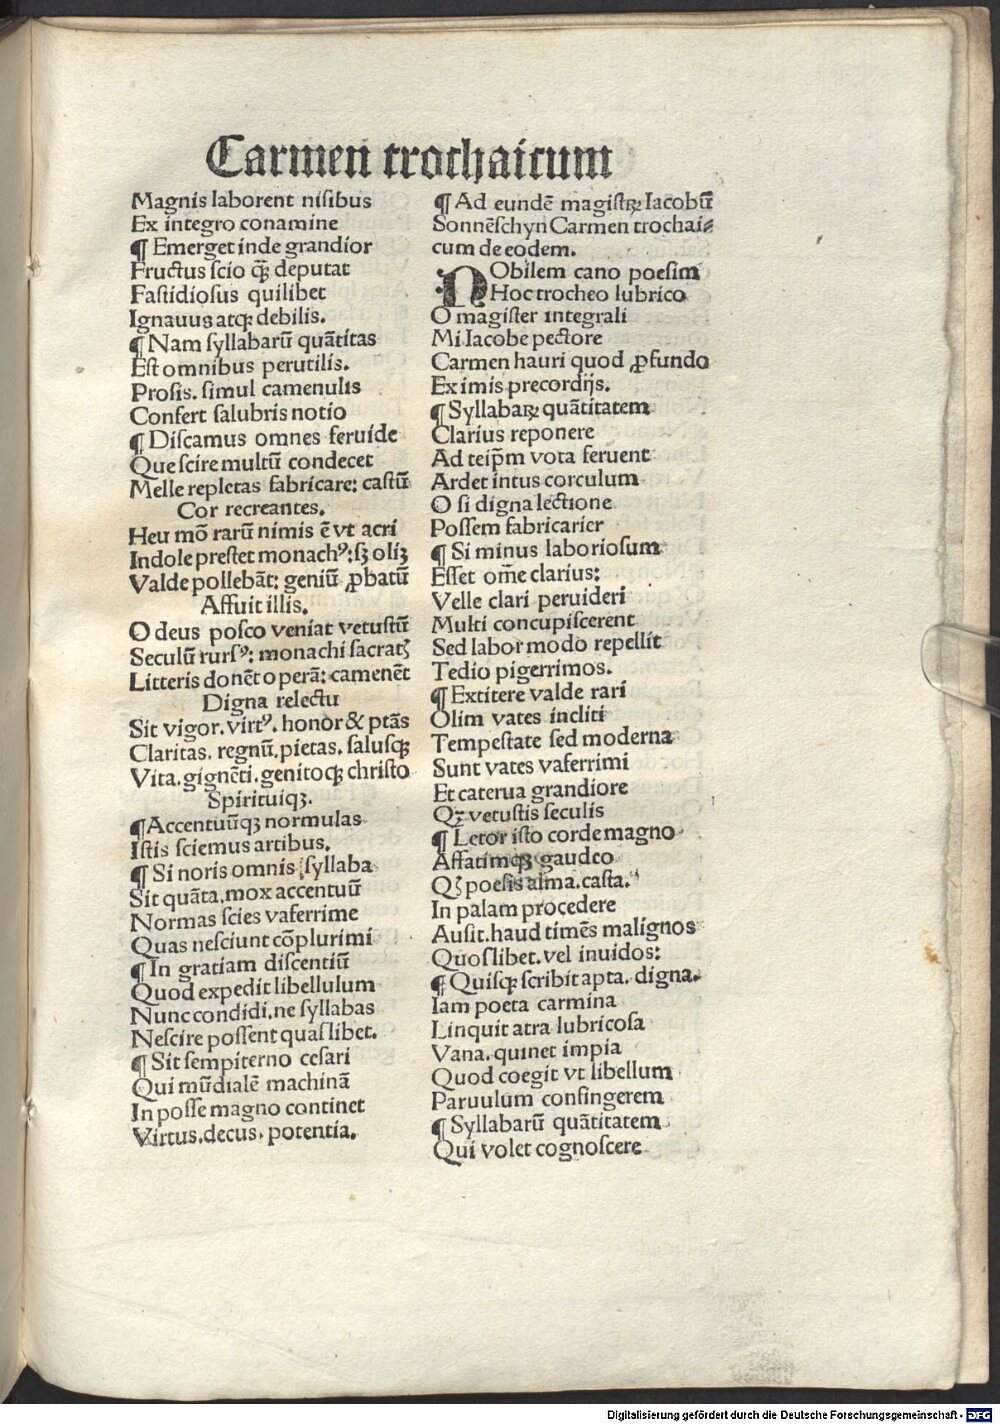 Carmen trochaicum
Magnis laborent nisibus
Ex integro conamine
¶ Emerget inde grandior
Fructus scio qꝫ̃ deputat
Fastidiosus quilibet
Ignauus atqꝫ debilis.
¶ Nam syllabarũ quãtitas
Est omnibus perutilis.
Prosis. simul camenulis
Confert salubris notio
¶ Discamus omnes feruide
Que scire multũ condecet
Melle repletas fabricare: castũ
Cor recreantes.
Heu mõ rarũ nimis ẽ vt acri
Indole prestet monachꝰ: sꝫ oliꝫ
Valde pollebãt: geniũ ꝓbatũ
Affuit illis.
O deus posco veniat vetustũ
Seculũ rursꝰ: monachi sacratꝫ
Litteris donẽt operã: camenẽt
Digna relectu
Sit vigor. virtꝰ. honor & ptãs
Claritas. regnũ. pietas. salusqꝫ
Vita. gignẽti. genitoqꝫ christo
Spirituiqꝫ.
¶ Accentuũqꝫ normulas
Istis sciemus artibus.
¶ Si noris omnis syllaba
Sit quãta. mox accentuũ
Normas scies vaferrime
Quas nesciunt cõplurimi
¶ In gratiam discentiũ
Quod expedit libellulum
Nunc condidi. ne syllabas
Nescire possent quaslibet.
¶ Sit sempiterno cesari
Qui mũdialẽ machinã
In posse magno continet
Virtus. decus. potentia.
¶ Ad eundẽ magistꝝ Iacobũ
Sonnẽschyn Carmen trochai⸗
cum de eodem.
NObilem cano poesim
Hoc trocheo lubrico
O magister integrali
Mi Iacobe pectore
Carmen hauri quod ꝓfundo
Ex imis precordijs.
¶ Syllabaꝝ quãtitatem
Clarius reponere
Ad teip̃m vota feruent
Ardet intus corculum
O si digna lectione
Possem fabricarier
¶ Si minus laboriosum
Esset om̃e clarius:
Velle clari peruideri
Multi concupiscerent
Sed labor modo repellit
Tedio pigerrimos.
¶ Extitere valde rari
Olim vates incliti
Tempestate sed moderna
Sunt vates vaferrimi
Et caterua grandiore
Qꝫ vetustis seculis
¶ Letor isto corde magno
Affatimqꝫ gaudeo
Qꝫ poesis alma. casta.
In palam procedere
Ausit. haud timẽs malignos
Quoslibet. vel inuidos:
¶ Quisqꝫ scribit apta. digna.
Iam poeta carmina
Linquit atra lubricosa
Vana. quinet impia
Quod coegit vt libellum
Paruulum confingerem
¶ Syllabarũ quãtitatem
Qui volet cognoscere
Digitalisierung gefördert durch die Deutsche Forschungsgemeinschaft - DFG